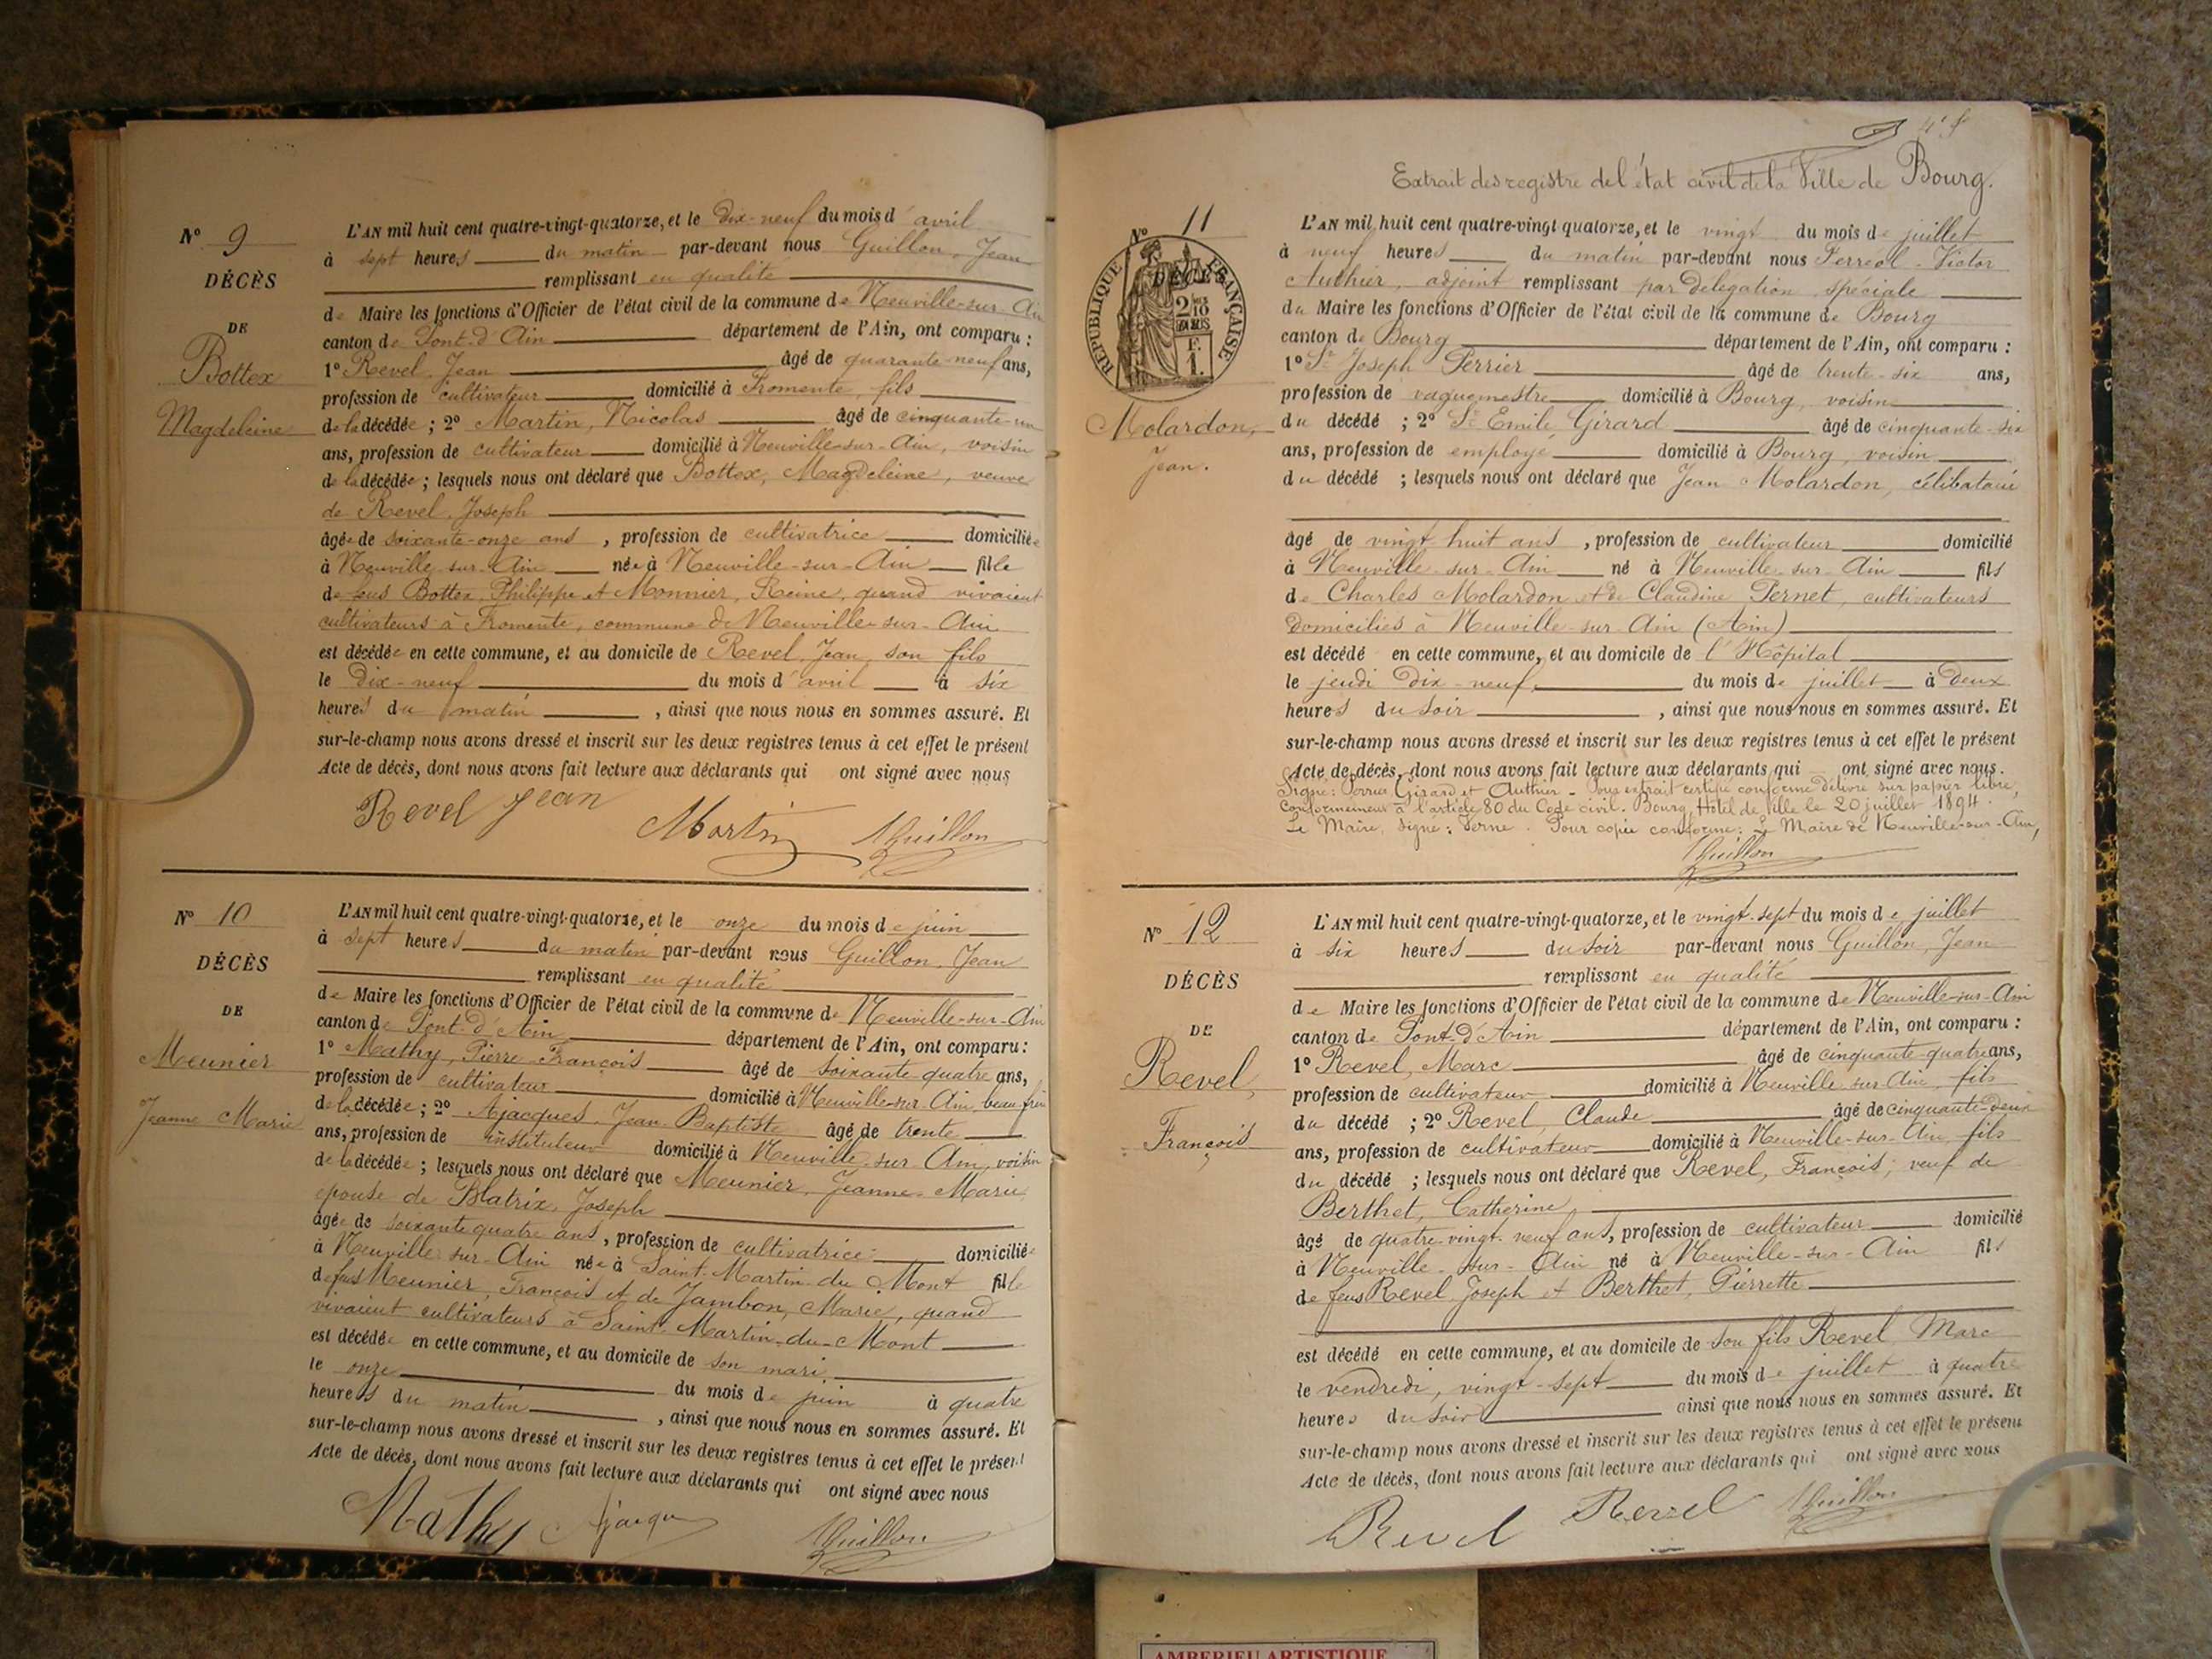 N° 9
DÉCÈS
DE
Bottex
Magdeleine
L'AN mil huit cent quatre-vingt-quatorze, et le dix-neuf du mois d'avril
à sept heures du matin par-devant nous Guillon, Jean
remplissant en qualité
de Maire les fonctions d'Officier de l'état civil de la commune de Neuville-sur-Ain
canton de Pont-d'Ain département de l'Ain, ont comparu :
1° Revel, Jean âgé de quarante-neuf ans,
profession de cultivateur domicilié à Fromente, fils
de la décédée ; 2° Martin, Nicolas âgé de cinquante-un
ans, profession de cultivateur domicilié à Neuville-sur-Ain, voisin
de la décédée ; lesquels nous ont déclaré que Bottex, Magdeleine, veuve
de Revel, Joseph
âgée de soixante-onze ans, profession de cultivatrice domiciliée
à Neuville-sur-Ain née à Neuville-sur-Ain fille
de feus Bottex, Philippe et Monnier, Reine, quand vivaient
cultivateurs à Fromente, commune de Neuville-sur-Ain
est décédée en cette commune, et au domicile de Revel, Jean, son fils
le dix-neuf du mois d'avril à six
heures du matin, ainsi que nous nous en sommes assuré. Et
sur-le-champ nous avons dressé et inscrit sur les deux registres tenus à cet effet le présent
Acte de décès, dont nous avons fait lecture aux déclarants qui ont signé avec nous
Revel Jean Martin JGuillon
N° 10
DÉCÈS
DE
Meunier
Jeanne Marie
L'AN mil huit cent quatre-vingt-quatorze, et le onze du mois de juin
à sept heures du matin par-devant nous Guillon, Jean
remplissant en qualité
de Maire les fonctions d'Officier de l'état civil de la commune de Neuville-sur-Ain
canton de Pont-d'Ain département de l'Ain, ont comparu :
1° Mathy, Pierre-François âgé de soixante-quatre ans,
profession de cultivateur domicilié à Neuville-sur-Ain, beau-frère
de la décédée ; 2° Ajacques, Jean-Baptiste âgé de trente
ans, profession de instituteur domicilié à Neuville-sur-Ain, voisin
de la décédée ; lesquels nous ont déclaré que Meunier, Jeanne-Marie
épouse de Blatrix, Joseph
âgée de soixante quatre ans, profession de cultivatrice domiciliée
à Neuville-sur-Ain née à Saint-Martin-du-Mont fille
de feus Meunier, François et de Jambon, Marie, quand
vivaient cultivateurs à Saint-Martin-du-Mont
est décédée en cette commune, et au domicile de son mari
le onze du mois de juin à quatre
heures du matin, ainsi que nous nous en sommes assuré. Et
sur-le-champ nous avons dressé et inscrit sur les deux registres tenus à cet effet le présent
Acte de décès, dont nous avons fait lecture aux déclarants qui ont signé avec nous
Mathy Ajacque JGuillon
Extrait des registre de l'état civil de la Ville de Bourg.
N° 11
RÉPUBLIQUE FRANÇAISE
Molardon,
Jean.
L'AN mil huit cent quatre-vingt quatorze, et le vingt du mois de juillet
à neuf heures du matin par-devant nous Ferréol-Victor
Authier, adjoint remplissant par délégation spéciale
du Maire les fonctions d'Officier de l'état civil de la commune de Bourg
canton de Bourg département de l'Ain, ont comparu :
1° Sr Joseph Perrier âgé de trente-six ans,
profession de vaguemestre domicilié à Bourg, voisin
du décédé ; 2° Sr Emile Girard âgé de cinquante-six
ans, profession de employé domicilié à Bourg, voisin
du décédé ; lesquels nous ont déclaré que Jean Molardon, célibataire
âgé de vingt-huit ans, profession de cultivateur domicilié
à Neuville-sur-Ain né à Neuville-sur-Ain fils
de Charles Molardon et de Claudine Pernet, cultivateurs
domiciliés à Neuville-sur-Ain (Ain)
est décédé en cette commune, et au domicile de l'Hôpital
le jeudi dix-neuf du mois de juillet à deux
heures du soir, ainsi que nous nous en sommes assuré. Et
sur-le-champ nous avons dressé et inscrit sur les deux registres tenus à cet effet le présent
Acte de décès, dont nous avons fait lecture aux déclarants qui ont signé avec nous.
Signé : Perrier Girard et Authier - Pour extrait certifié conforme délivré sur papier libre,
conformément à l'article 80 du Code civil. Bourg, Hôtel de Ville le 20 juillet 1894.
Le Maire, signé : Verne. Pour copie conforme : Le Maire de Neuville-sur-Ain,
JGuillon
N° 12
DÉCÈS
DE
Revel,
François
L'AN mil huit cent quatre-vingt-quatorze, et le vingt-sept du mois de juillet
à six heures du soir par-devant nous Guillon, Jean
remplissant en qualité
de Maire les fonctions d'Officier de l'état civil de la commune de Neuville-sur-Ain
canton de Pont-d'Ain département de l'Ain, ont comparu :
1° Revel, Marc âgé de cinquante-quatre ans,
profession de cultivateur domicilié à Neuville-sur-Ain, fils
du décédé ; 2° Revel, Claude âgé de cinquante-deux
ans, profession de cultivateur domicilié à Neuville-sur-Ain, fils
du décédé ; lesquels nous ont déclaré que Revel, François, veuf de
Berthet, Catherine
âgé de quatre-vingt-neuf ans, profession de cultivateur domicilié
à Neuville-sur-Ain né à Neuville-sur-Ain fils
de feus Revel Joseph et Berthet, Pierrette
est décédé en cette commune, et au domicile de son fils Revel, Marc
le vendredi, vingt-sept du mois de juillet à quatre
heures du soir ainsi que nous nous en sommes assuré. Et
sur-le-champ nous avons dressé et inscrit sur les deux registres tenus à cet effet le présent
Acte de décès, dont nous avons fait lecture aux déclarants qui ont signé avec nous
Revel Revel JGuillon
AMBERIEU ARTISTIQUE